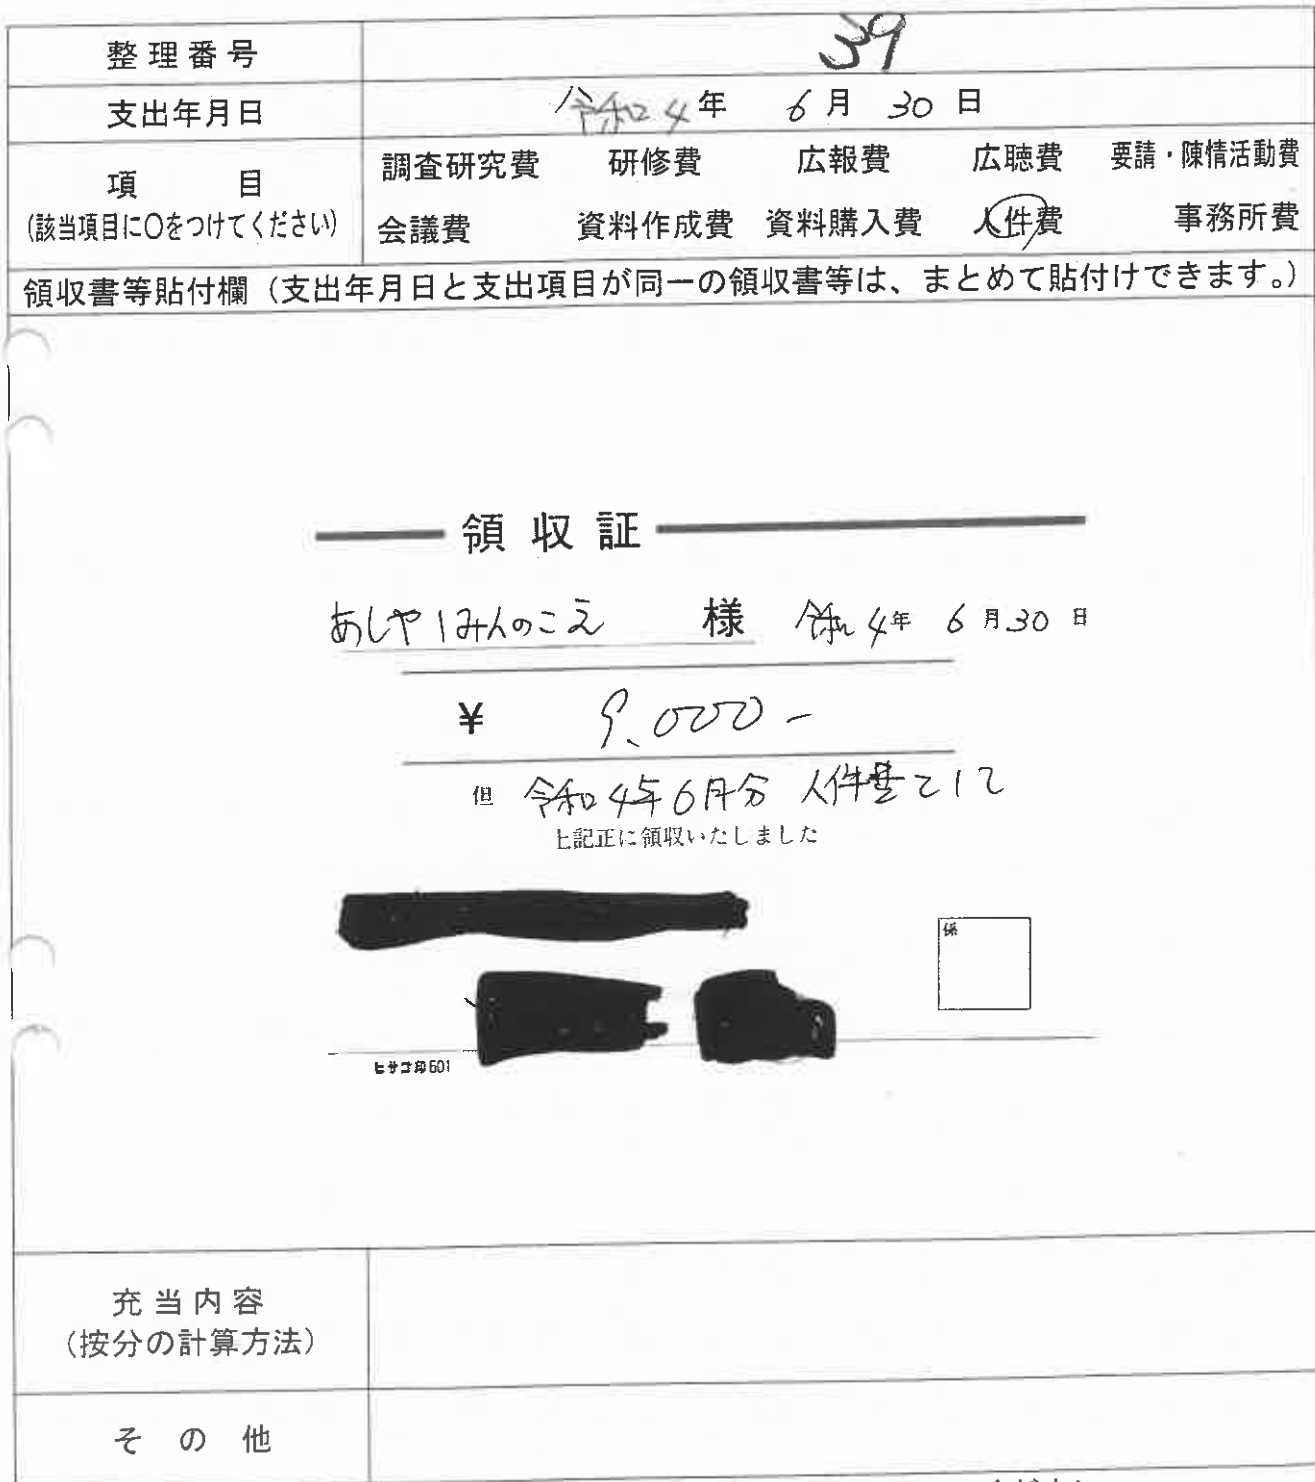 整理番号 39
支出年月日 令和4年 6月 30日
項目 調査研究費 研修費 広報費 広聴費 要請・陳情活動費
(該当項目に〇をつけてください) 会議費 資料作成費 資料購入費 人件費 事務所費
領収書等貼付欄（支出年月日と支出項目が同一の領収書等は、まとめて貼付けできます。）
領収証
あしやしみんのこえ 様 令和4年 6月30日
¥ 9,000-
但 令和4年6月分 人件費として
上記正に領収いたしました
係
ヒサゴ印601
充当内容
（按分の計算方法）
その他